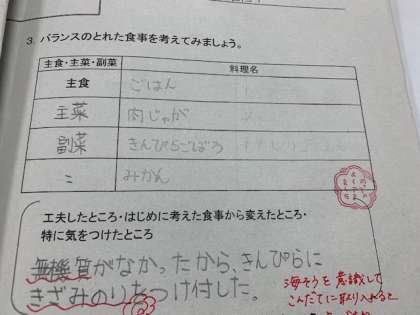 3. バランスのとれた食事を考えてみましょう。
主食・主菜・副菜 料理名
主食 ごはん
主菜 肉じゃが
副菜 きんぴらごぼう
〃 みかん
工夫したところ・はじめに考えた食事から変えたところ・
特に気をつけたところ
無機質がなかったから、きんぴらに
きざみのりをつけ付した。
海そうを意識して
こんだてに取り入れると